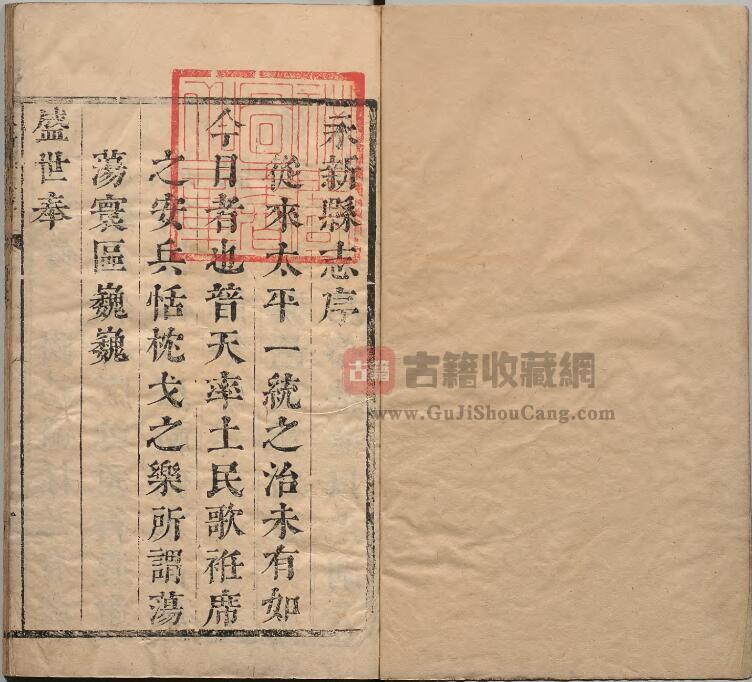 永新縣志序
從來太平一統之治未有如
今日者也普天率土民歌袵席
之安兵恬枕戈之樂所謂蕩
蕩寰區巍巍
盛世奉
古籍 古籍收藏網
www.GuJiShouCang.com